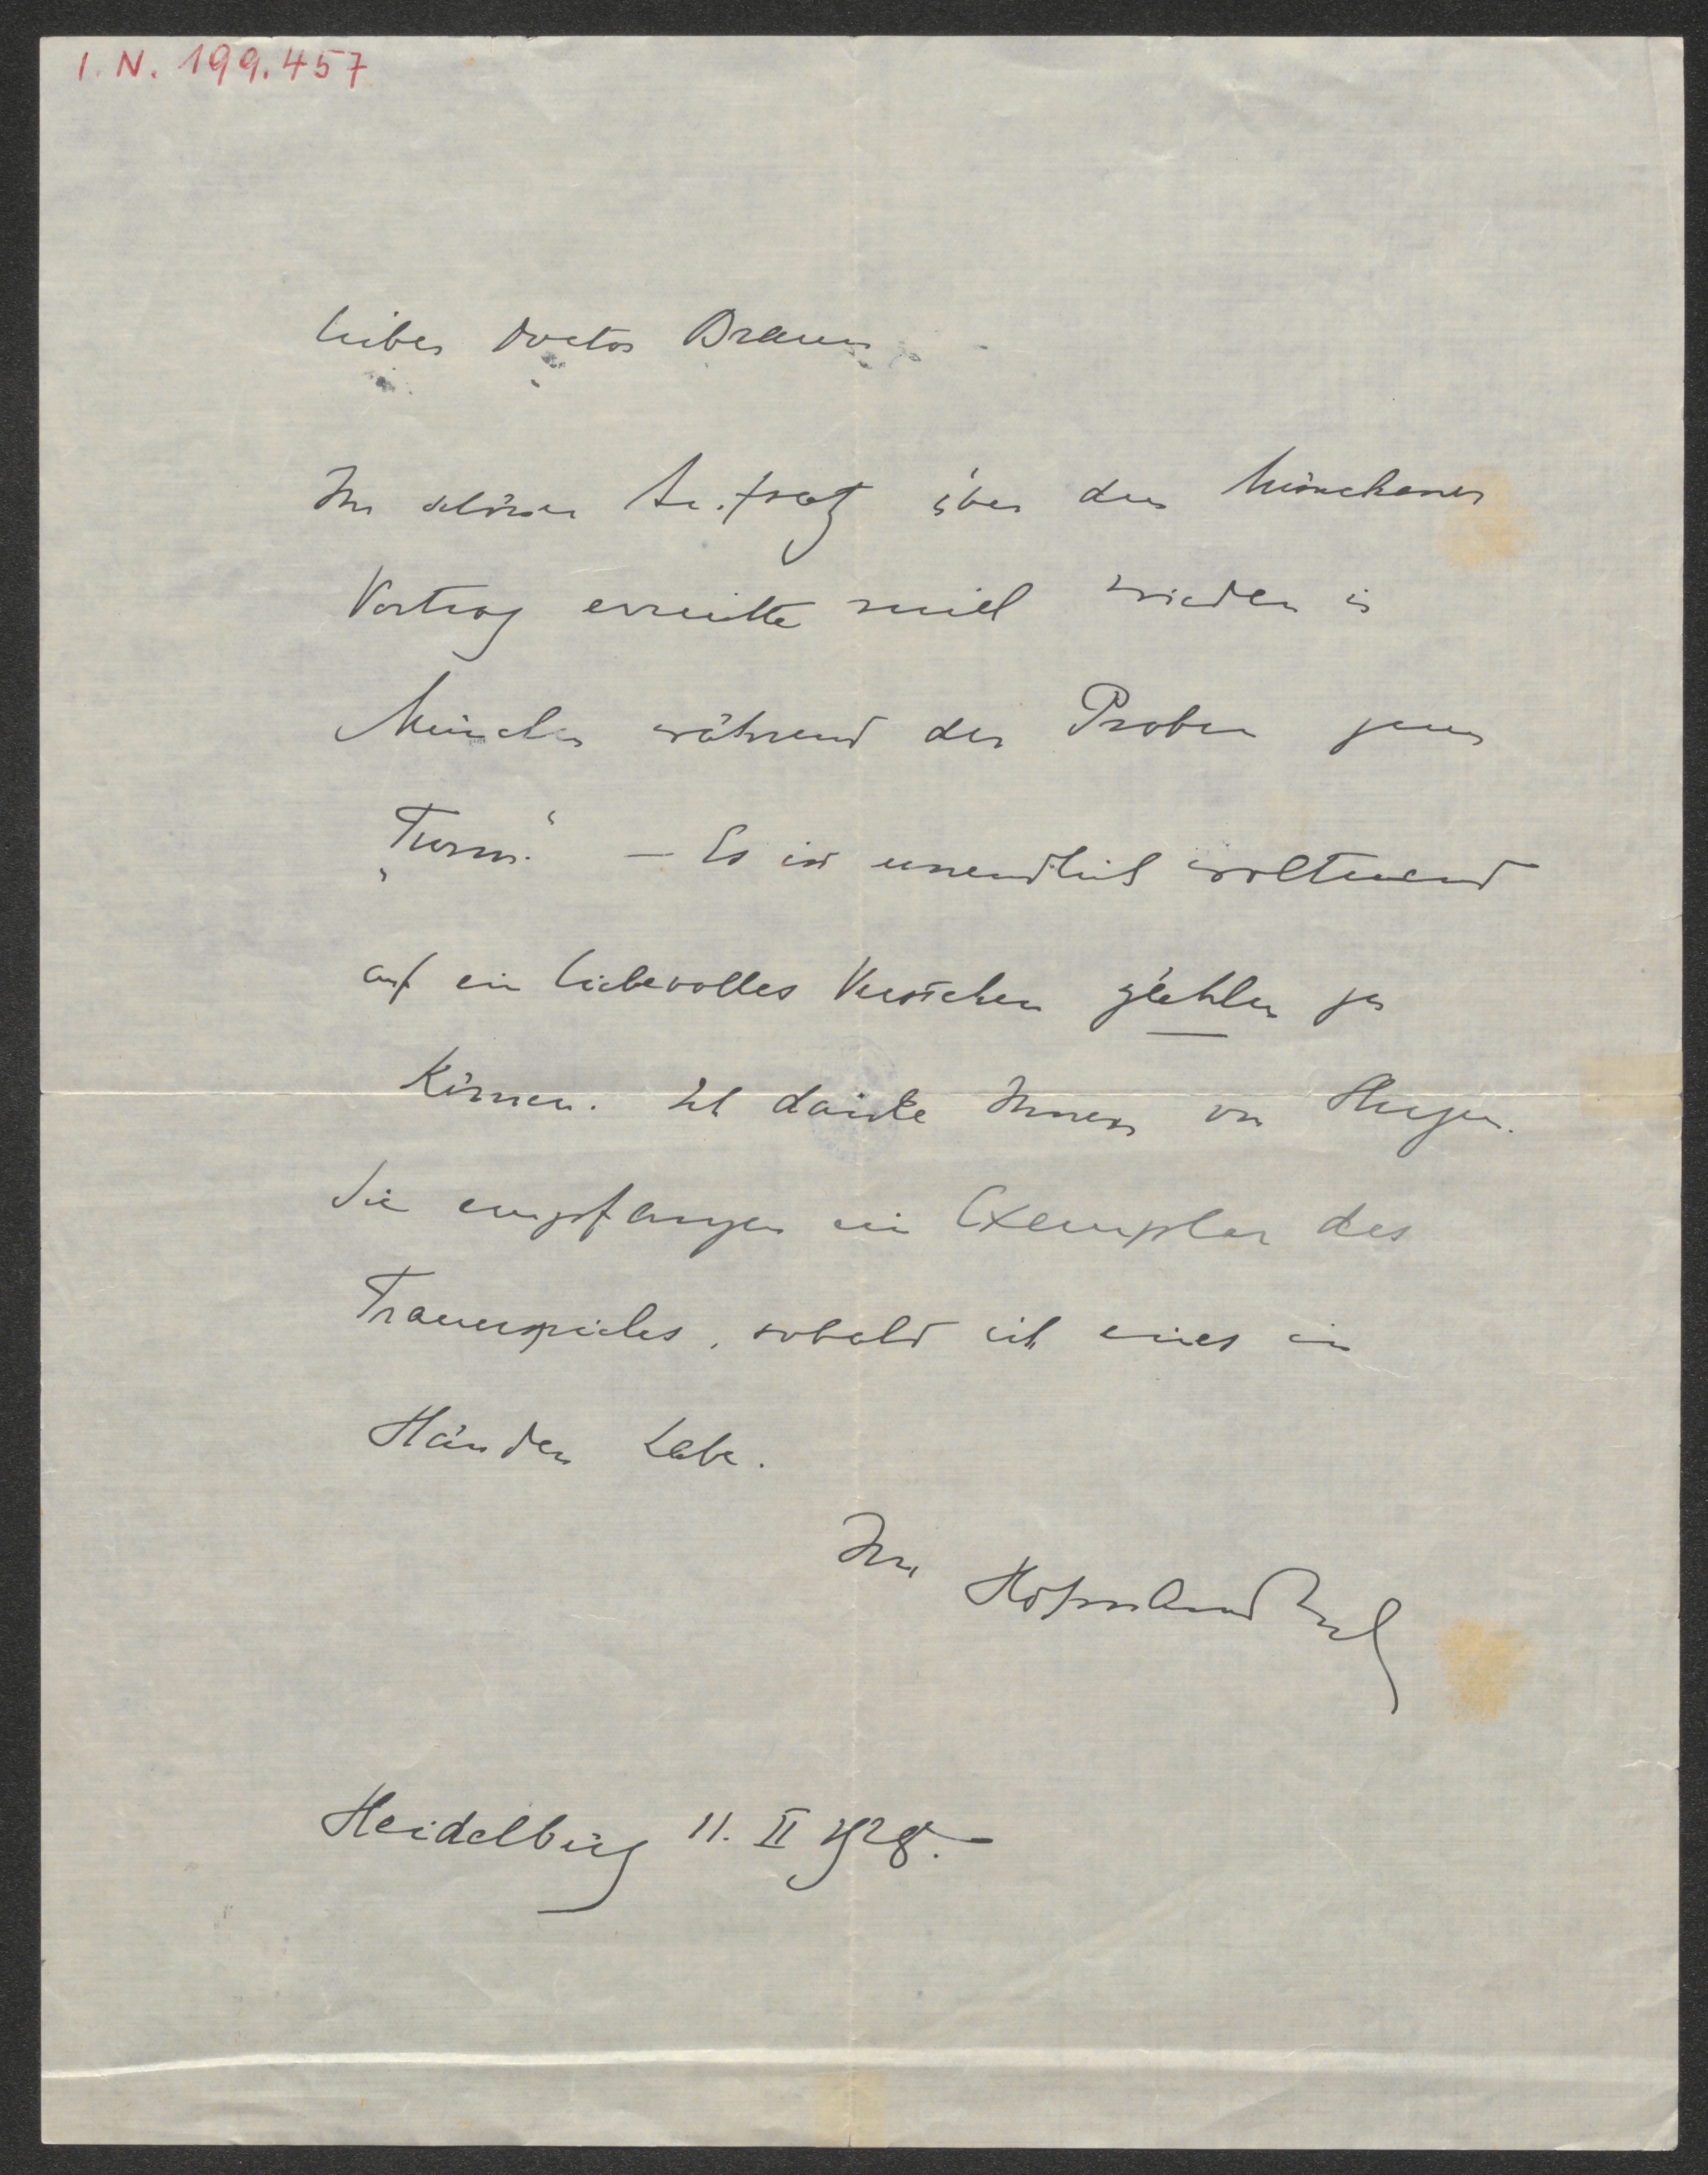 I. N. 199.457
lieber Doctor Braun
Ihr schöner Aufsatz über den Münchener
Vortrag erreichte mich wieder in
München während der Proben zum
„Turm“ — Es ist unendlich woltuend
auf ein liebevolles Verstehen zählen zu
können. Ich danke Ihnen von Herzen.
Sie empfangen ein Exemplar des
Trauerspieles, sobald ich eines in
Händen habe.
Ihr Hofmannsthal
Heidelberg 11. II 1928.—